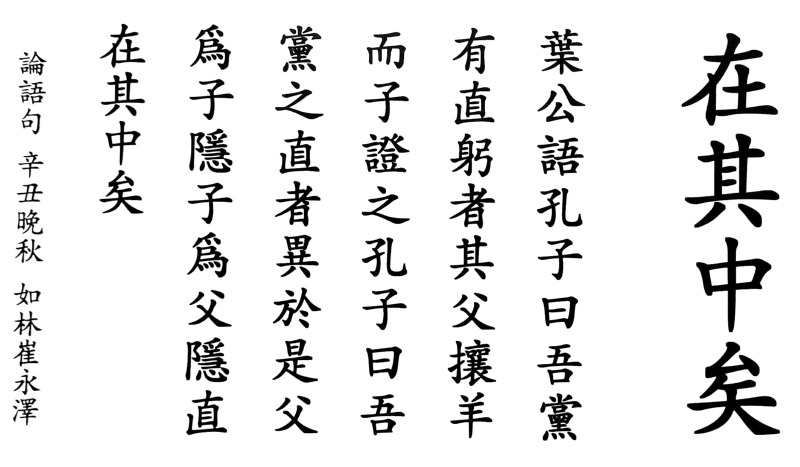 在其中矣
葉公語孔子曰吾黨
有直躬者其父攘羊
而子證之孔子曰吾
黨之直者異於是父
爲子隱子爲父隱直
在其中矣
論語句 辛丑晚秋 如林崔永澤